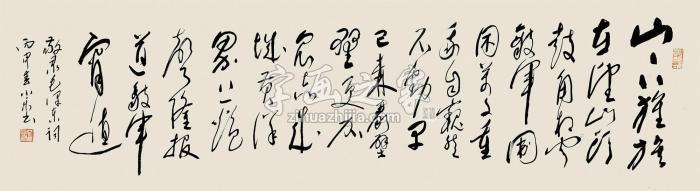 山下旌旗
在望山头
鼓角相闻
敌军围
困万千重
我自巍然
不动早
已森严壁
垒更加
众志成
城黄洋
界上炮
声隆报
道敌军
宵遁
敬录毛泽东词
丙申
字画之家
zihuazhijia.com